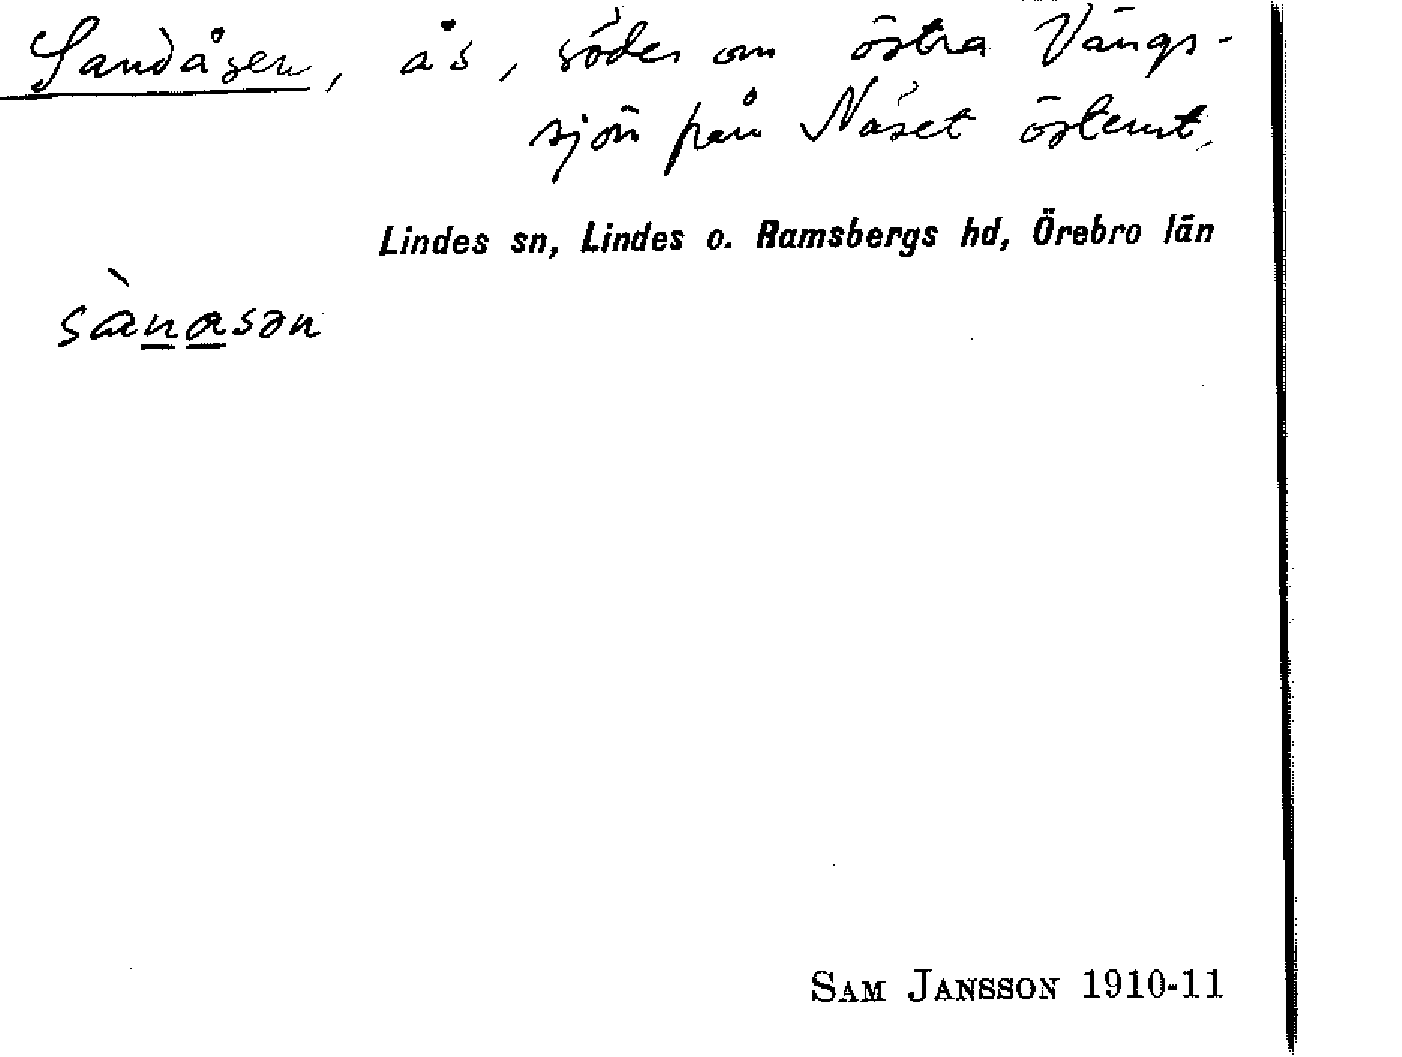 Sandåsen, ås, söder om östra Vängs-
sjön från Näset österut.
Lindes sn, Lindes o. Ramsbergs hd, Örebro län
sànasən
SAM JANSSON 1910-11